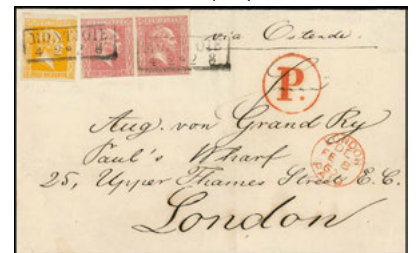 MONTJOIE
via Ostende.
P.
Aug. von Grand Ry
Paul's Wharf
25, Upper Thames Street E. C.
London
LONDON
PAID